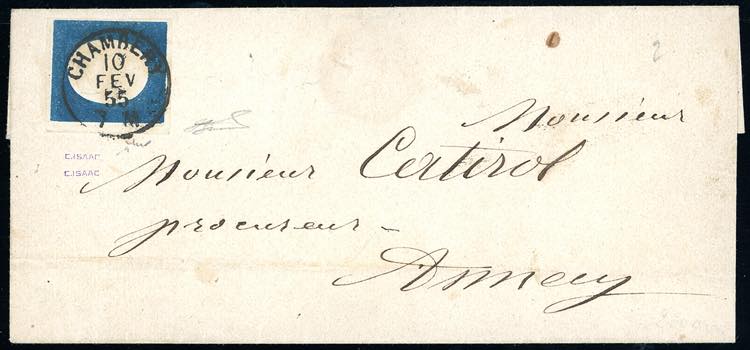 CHAMBERY
10
FEV
55
7 M
C.ISAAC
C.ISAAC
Monsieur
Monsieur Certirol
procureur -
Annecy